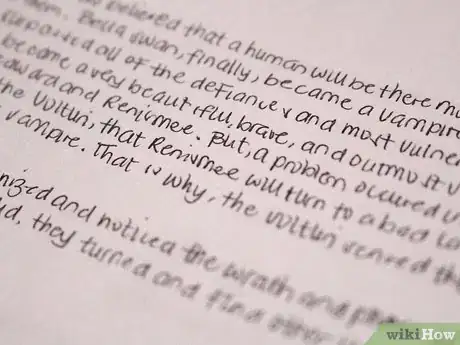 believed that a human will be there
Bella Swan, finally, became a vampire
all of the defiance & and most vulner
became a very beautiful, brave, and outmost v
Edward and Renismee. But, a problem occured w
the Volturi, that Renismee will turn to a bad
vampire. That is why, the Volturi scared the
and noticed the wrath and
they turned and find other
wikiHow